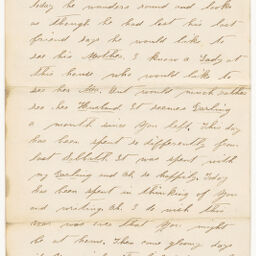 today he wanders round and looks
as though he had lost his last
friend says he would like to
see his Mother. I know a Lady at
this house who would like to
see her Mo. But would much rather
see her Husband. It seemes Darling
a month since you left. This day
has been spent so differently from
last Sabbath. It was spent with
my Darling and Oh so happily. Today
has been spent in thinking of you
and writing. Oh. I do wish this
war was over that you might
be at home. These come gloomy days